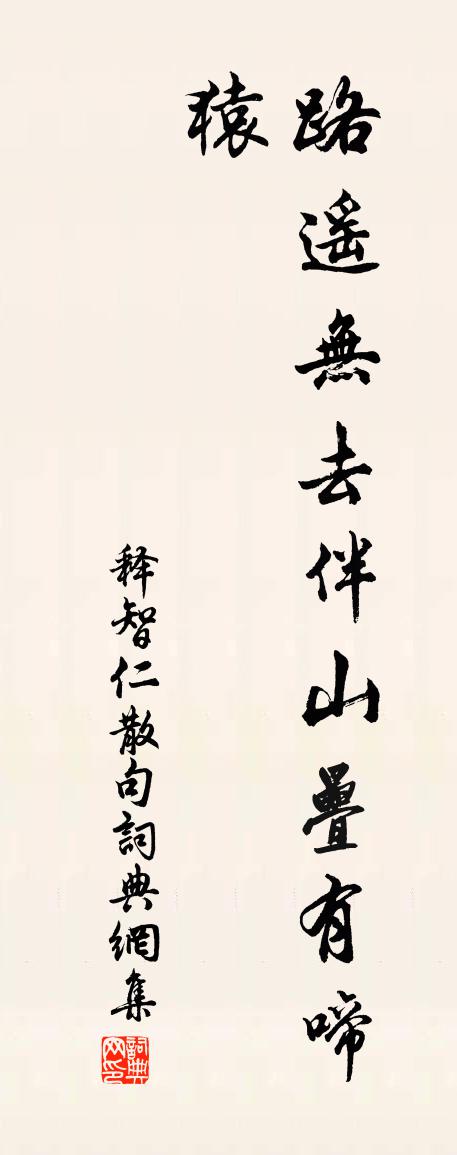 路遥無去伴山疊有啼
猿
释智仁散句詞典網集
詞典
网印